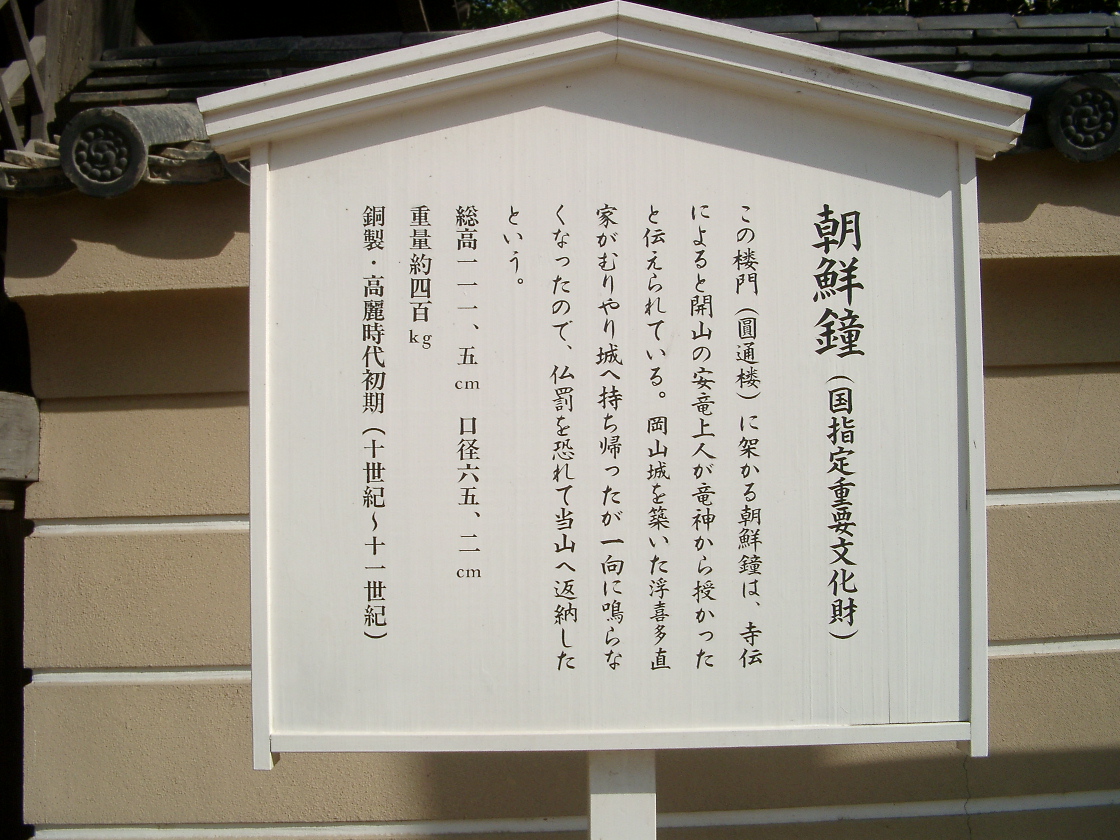 朝鮮鐘（国指定重要文化財）
この楼門（圓通楼）に架かる朝鮮鐘は、寺伝
によると開山の安竜上人が竜神から授かった
と伝えられている。岡山城を築いた浮喜多直
家がむりやり城へ持ち帰ったが一向に鳴らな
くなったので、仏罰を恐れて当山へ返納した
という。
総高一一一、五cm 口径六五、二cm
重量約四百kg
銅製・高麗時代初期（十世紀～十一世紀）